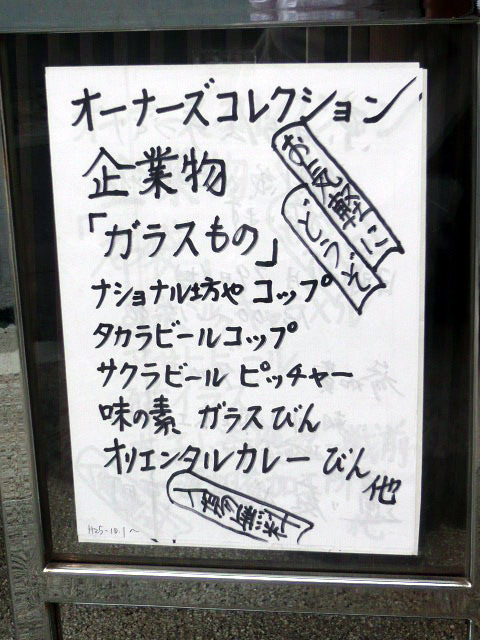 オーナーズコレクション
企業物
「ガラスもの」
お気軽に
どうぞ
ナショナル坊や コップ
タカラビールコップ
サクラビール ピッチャー
味の素 ガラスびん
オリエンタルカレー びん
他
入場無料
H25-10.1~